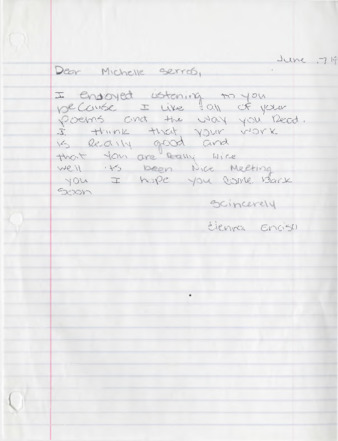 June
Dear Michelle Serros,
I enjoyed listening to you
because I like all of your
poems and the way you Read.
I think that your work
is Really good and
that you are Really nice
well its been nice Meeting
you I hope you come back
soon
Scincerely